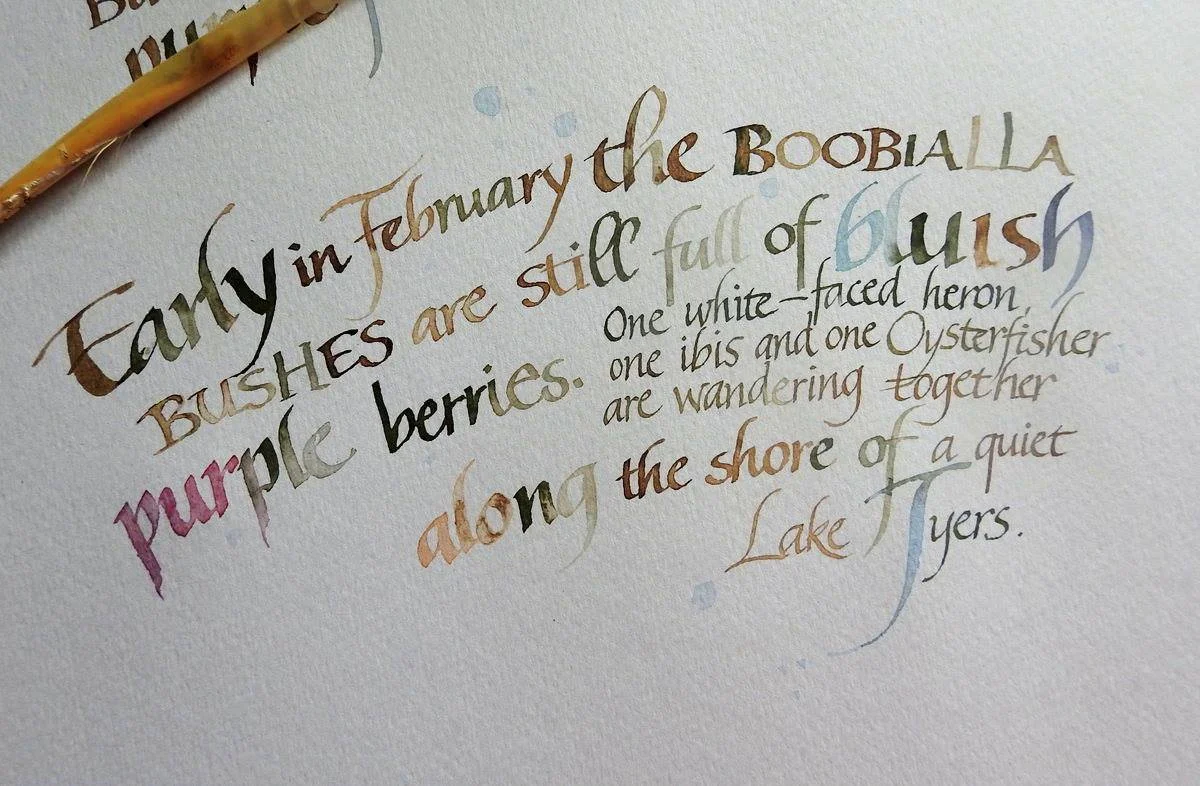 Early in February the BOOBIALLA
BUSHES are still full of bluish
purple berries.
One white-faced heron,
one ibis and one Oysterfisher
are wandering together
along the shore of a quiet
Lake Tyers.